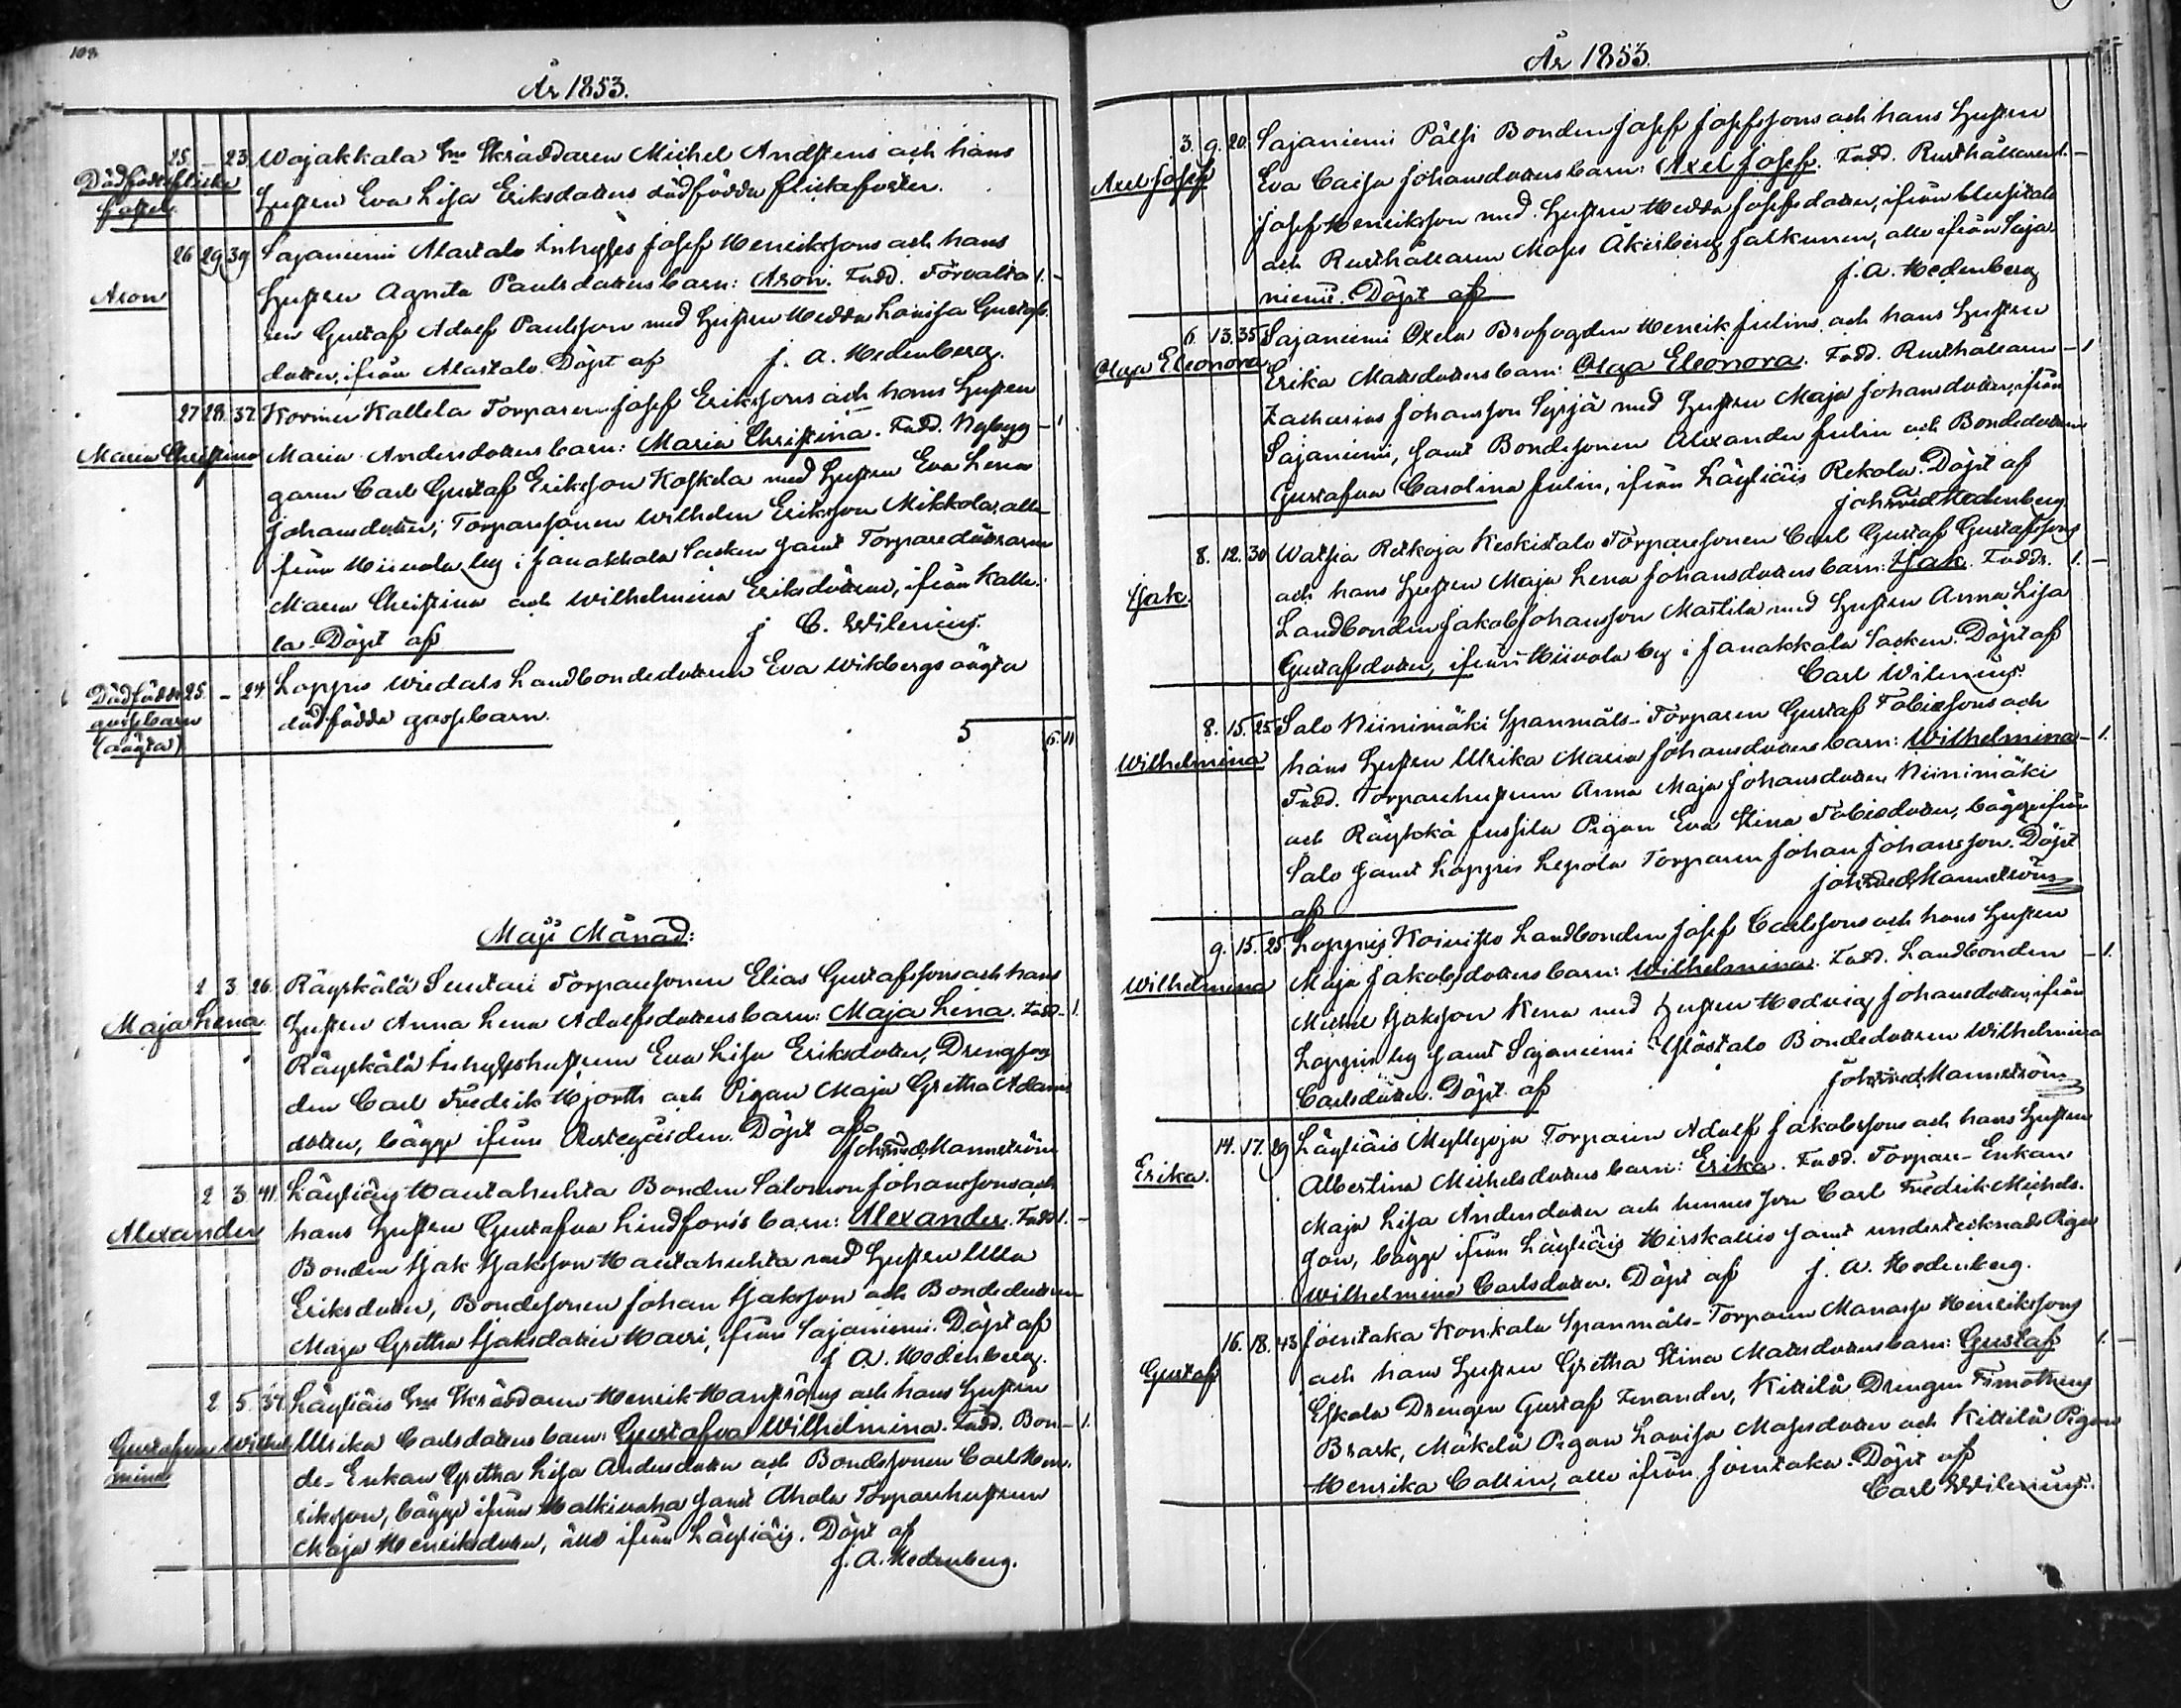 108
År 1853.
25. – 23. Wojakkala Sn Skräddaren Michel Andsténs och hans
Dödfödt flicke foster. Hustru Eva Lisa Eriksdotters dödfödda flickefoster.
26 29 39 Sajaniemi Alastalo Inhyses Josef Henrikssons och hans
Aron Hustru Agneta Paulsdotters barn: Aron. Fadd. Förvalta 1. –
ren Gustaf Adolf Paulsson med Hustru Hedda Lovisa Gustafs
dotter, ifrån Alastalo. Döpt af J. A. Hedenberg.
27 28. 37. Kormu Kallela Torparen Josef Erikssons och hans Hustru
Maria Christina Maria Andersdotters barn: Maria Christina. Fadd. Nybyg – 1
garen Carl Gustaf Eriksson Koskela med Hustru Eva Lena
Johansdotter; Torparesonen Wilhelm Eriksson Mikkola, alle
från Hiivola by i Janakkala Socken samt Torparedöttrarne
Maria Christina och Wilhelmina Eriksdöttrar, ifrån Kalle-
la. Döpt af C. Wilenius.
Dödfödda gossebarn (oägta) 25. – 24. Loppis Wiedals Landbondedottren Eva Wikbergs oägta
dödfödda gossebarn.
5 6. 11
Maji Månad:
2 3 26. Räyskälä Suutari Torparesonen Elias Gustafssons och hans
Maja Lena. Hustru Anna Lena Adolfsdotters barn: Maja Lena. Fadd. – 1.
Räyskälä Inhyseshustrun Eva Lisa Eriksdotter, Drengen
Carl Fredrik Hjorth och Pigan Maja Gretha Adams
dotter, bägge ifrån Prestegården. Döpt af Joh: Fred: Mannström
2 3. 41. Läyliäis Hautahuhta Bonden Salomon Johanssons och
Alexander hans Hustru Gustafva Lindfors's barn: Alexander. Fadd. 1. –
Bonden Isak Isaksson Hautahuhta med Hustru Ulla
Eriksdotter, Bondesonen Johan Isaksson och Bondedottren
Maja Gretha Isaksdotter Hauri, ifrån Sajaniemi. Döpt af
J. A. Hedenberg.
2 5. 34. Läyliäis Sn Skräddaren Henrik Hanströms och hans Hustru
Gustafva Wilhelmina Ulrika Carlsdotters barn: Gustafva Wilhelmina. Fadd. Bon – 1.
de-Enkan Gretha Lisa Andersdotter och Bondesonen Carl Hen-
riksson, bägge ifrån Halkivaha samt Ahola Torparehustrun
Maja Henriksdotter, alla ifrån Läyliäis. Döpt af
J. A. Hedenberg.
År 1853.
3. 9. 20. Sajaniemi Pälsi Bonden Josef Josefssons och hans Hustru
Axel Josef Eva Caisa Johansdotters barn: Axel Josef. Fadd. Rusthållaren 1. –
Josef Henriksson med Hustru Hedda Josefsdotter, ifrån Uusitalo
och Rusthållaren Moses Åkerberg Jalkunen, alle ifrån Saja-
niemi. Döpt af J. A. Hedenberg
6. 13. 35 Sajaniemi Oxela Brofogden Henrik Julins och hans Hustru
Olga Eleonora. Erika Matsdotters barn: Olga Eleonora. Fadd. Rusthållaren – 1
Zacharias Johansson Syrjä med Hustru Maja Johansdotter, ifrån
Sajaniemi, samt Bondesonen Alexander Julin och Bondedottren
Gustafva Carolina Julin, ifrån Läyliäis Rekola. Döpt af
Joh: A. Hedenberg
8. 12. 30 Watsia Retkoja Keskitalo Torparesonen Carl Gustaf Gustafssons
Isak. och hans Hustru Maja Lena Johansdotters barn: Isak. Faddr. 1. –
Landbonden Jakob Johansson Mattila med Hustru Anna Lisa
Gustafsdotter, ifrån Hiivola by i Janakkala Socken. Döpt af
Carl Wilenius.
8. 15. 25. Salo Niinimäki Spanmåls-Torparen Gustaf Fabiessons och
Wilhelmina hans Hustru Ulrika Maria Johansdotters barn: Wilhelmina – 1.
Fadd. Torparehustrun Anna Maja Johansdotter Niinimäki
och Räyskä Jussila Pigan Eva Stina Fabiesdotter, bägge ifrån
Salo samt Loppis Lepola Torparen Johan Johansson. Döpt
af Joh: Fred: Mannström
9. 15. 25. Loppis Koivisto Landbonden Josef Carlssons och hans Hustru
Wilhelmina Maja Jakobsdotters barn: Wilhelmina. Fadd. Landbonden – 1.
Michel Isaksson Kenra med Hustru Hedvig Johansdotter, ifrån
Loppis by samt Sajaniemi Ylöstalo Bondedottren Wilhelmina
Carlsdotter. Döpt af Joh: Fred: Mannström
14. 17. 29 Läyliäis Myllyoja Torparen Adolf Jakobssons och hans Hustru
Erika. Albertina Michelsdotters barn: Erika. Fadd. Torpare-Enkan
Maja Lisa Andersdotter och hennes son Carl Fredrik Michels-
son, bägge ifrån Läyliäis Hirskallio samt undertecknads Piga
Wilhelmina Carlsdotter. Döpt af J. A. Hedenberg.
16. 18. 43 Joentaka Konkala Spanmåls-Torparen Manasse Henrikssons
Gustaf och hans Hustru Gretha Stina Matsdotters barn: Gustaf 1. –
Eskola Drengen Gustaf Fenander, Kittilä Drengen Timotheus
Brask, Mäkelä Pigan Lovisa Mosesdotter och Kittilä Pigan
Henrika Callin, alla ifrån Joentaka. Döpt af
Carl Wilenius.